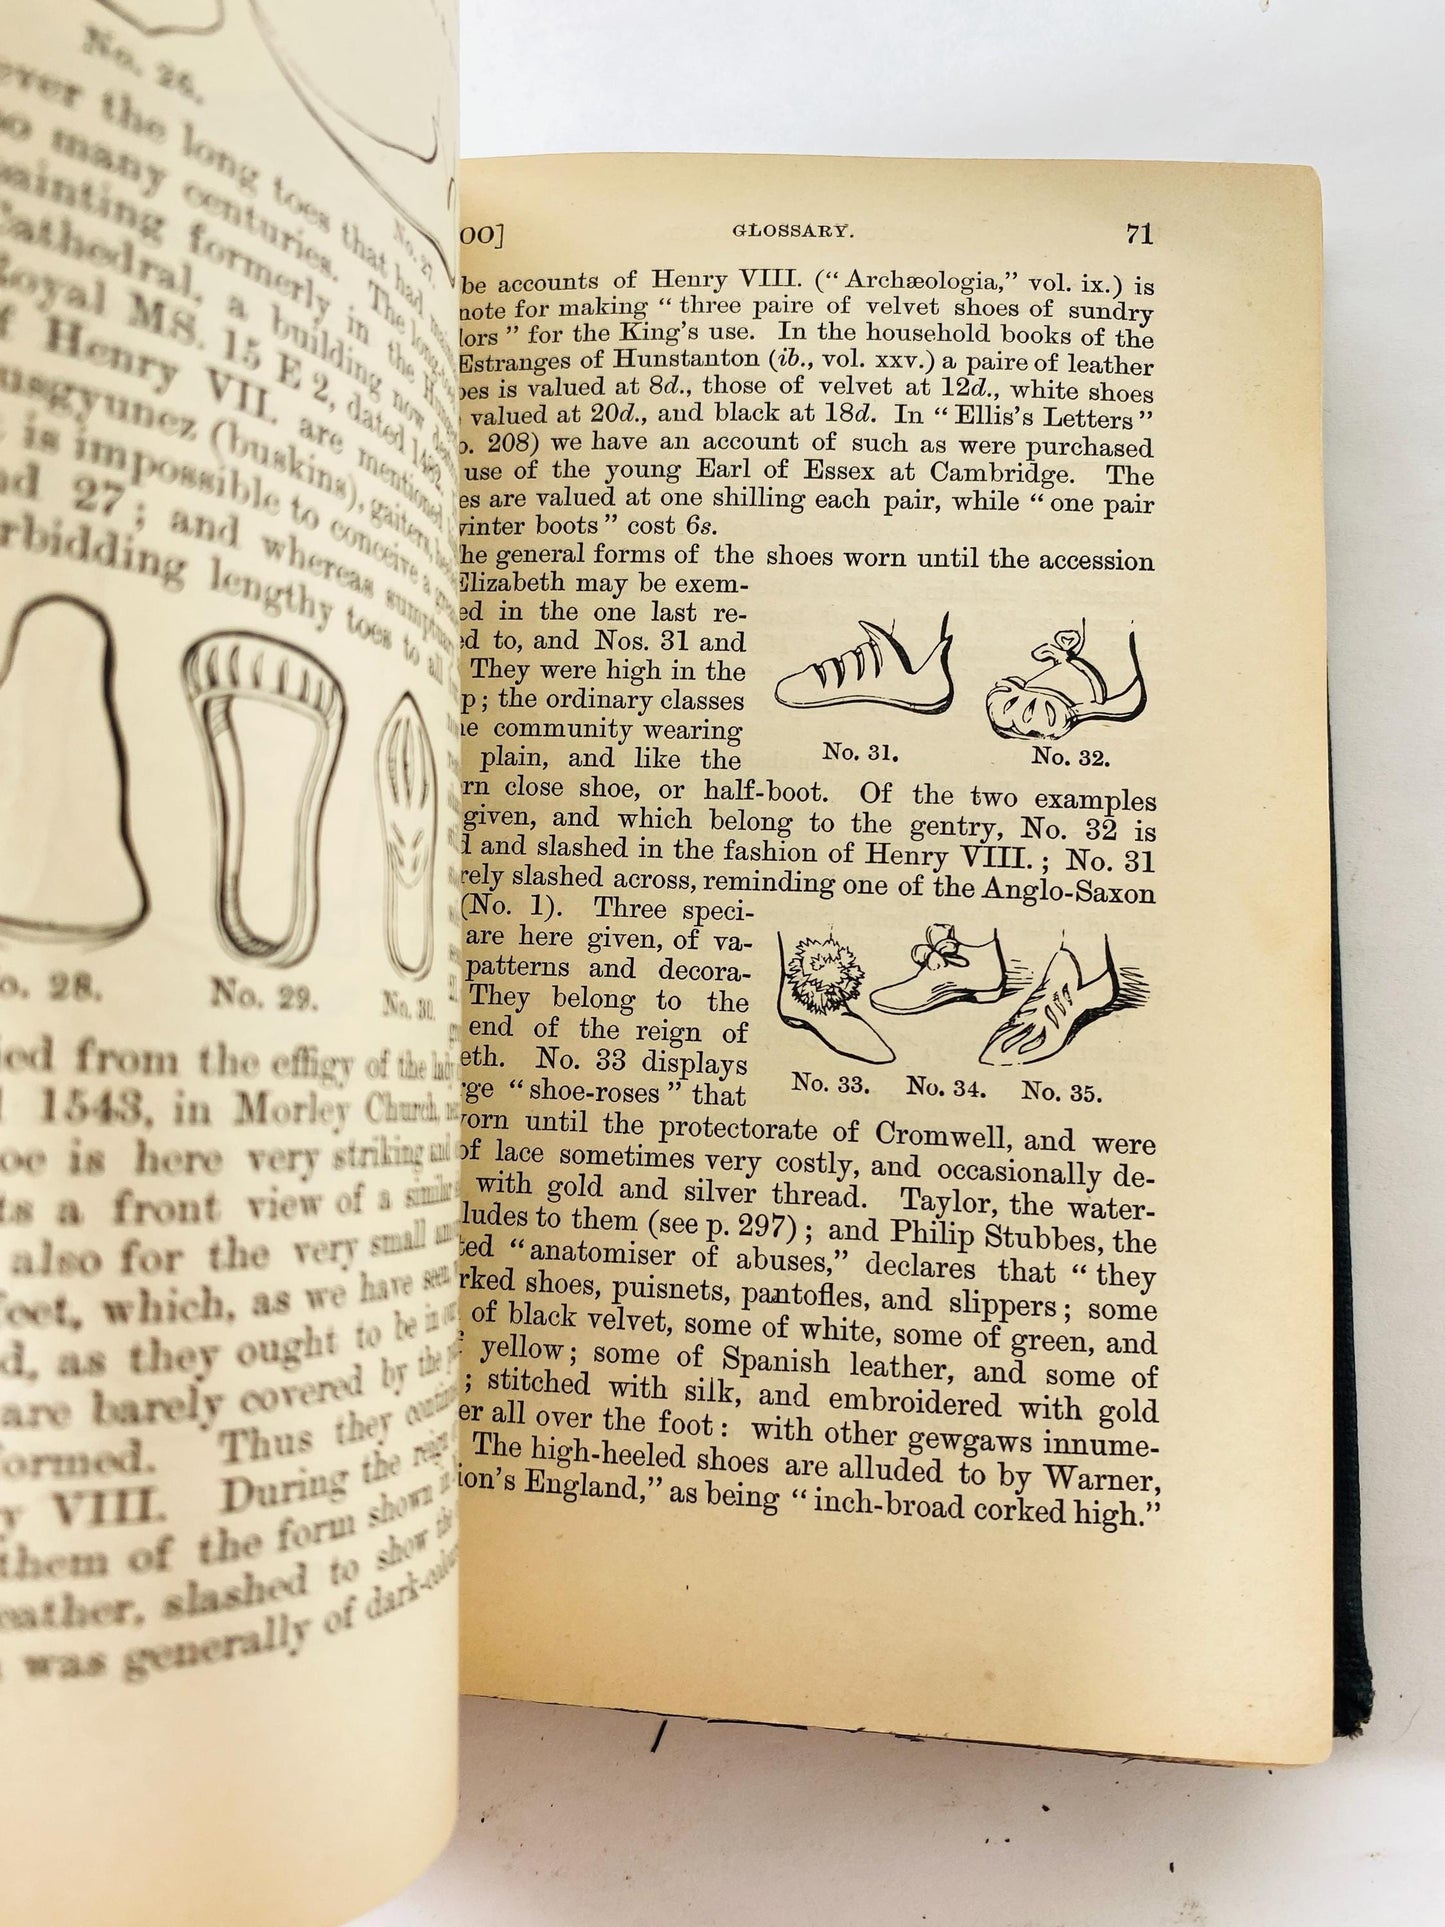 No. 26.
ever the long toes that had
so many centuries. The long
painting formerly in the
Cathedral, a building now
Royal MS. 15 E 2, dated 1482.
of Henry VII. are mentioned
(buskins), gaiters,
is impossible to conceive a
and 27; and whereas
forbidding lengthy toes to all
No. 27.
No. 28.
No. 29.
No. 30.
from the effigy of the lady
1543, in Morley Church,
is here very striking and
a front view of a similar
also for the very small
feet, which, as we have seen
as they ought to be in our
are barely covered by the
Thus they
VIII. During the reign
them of the form shown in
leather, slashed to show the
was generally of
OO]
GLOSSARY.
71
be accounts of Henry VIII. (“Archæologia,” vol. ix.) is
note for making “three paire of velvet shoes of sundry
lors” for the King's use. In the household books of the
Estranges of Hunstanton (ib., vol. xxv.) a paire of leather
oes is valued at 8d., those of velvet at 12d., white shoes
valued at 20d., and black at 18d. In “Ellis's Letters”
208) we have an account of such as were purchased
use of the young Earl of Essex at Cambridge. The
es are valued at one shilling each pair, while “one pair
winter boots” cost 6s.
he general forms of the shoes worn until the accession
Elizabeth may be exem-
ed in the one last re-
ed to, and Nos. 31 and
They were high in the
p; the ordinary classes
e community wearing
plain, and like the
No. 31.
No. 32.
rn close shoe, or half-boot. Of the two examples
given, and which belong to the gentry, No. 32 is
d and slashed in the fashion of Henry VIII.; No. 31
rely slashed across, reminding one of the Anglo-Saxon
(No. 1). Three speci-
are here given, of va-
patterns and decora-
They belong to the
end of the reign of
eth. No. 33 displays
rge “shoe-roses” that
No. 33.
No. 34.
No. 35.
worn until the protectorate of Cromwell, and were
of lace sometimes very costly, and occasionally de-
with gold and silver thread. Taylor, the water-
ludes to them (see p. 297); and Philip Stubbes, the
ted “anatomiser of abuses,” declares that “they
rked shoes, puisnets, pantofles, and slippers; some
of black velvet, some of white, some of green, and
yellow; some of Spanish leather, and some of
; stitched with silk, and embroidered with gold
er all over the foot: with other gewgaws innume-
The high-heeled shoes are alluded to by Warner,
ion's England,” as being “inch-broad corked high.”